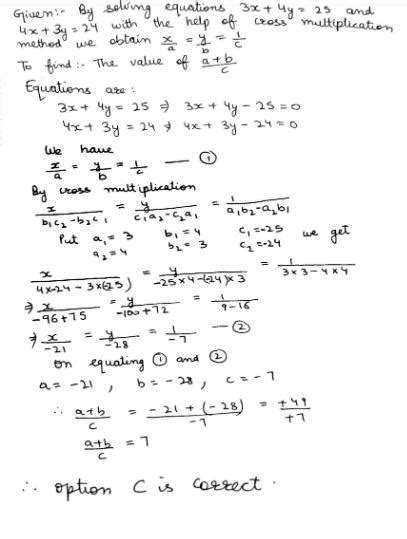 Given:- By solving equations 3x + 4y = 25 and
4x + 3y = 24 with the help of cross multiplication
method we obtain x/a = y/b = 1/c
To find:- The value of a+b/c
Equations are :
3x + 4y = 25 ⇒ 3x + 4y - 25 = 0
4x + 3y = 24 ⇒ 4x + 3y - 24 = 0
We have
x/a = y/b = 1/c — ①
By cross multiplication
x/b₁c₂-b₂c₁ = y/c₁a₂-c₂a₁ = 1/a₁b₂-a₂b₁
Put a₁ = 3 b₁ = 4 c₁ = -25 we get
a₂ = 4 b₂ = 3 c₂ = -24
x/4x-24 - 3x(-25) = y/-25x4-(-24)x3 = 1/3x3-4x4
⇒ x/-96+75 = y/-100+72 = 1/9-16
⇒ x/-21 = y/-28 = 1/-7 — ②
On equating ① and ②
a = -21 , b = -28 , c = -7
∴ a+b/c = -21+(-28)/-7 = +49/+7
a+b/c = 7
∴ option C is correct.